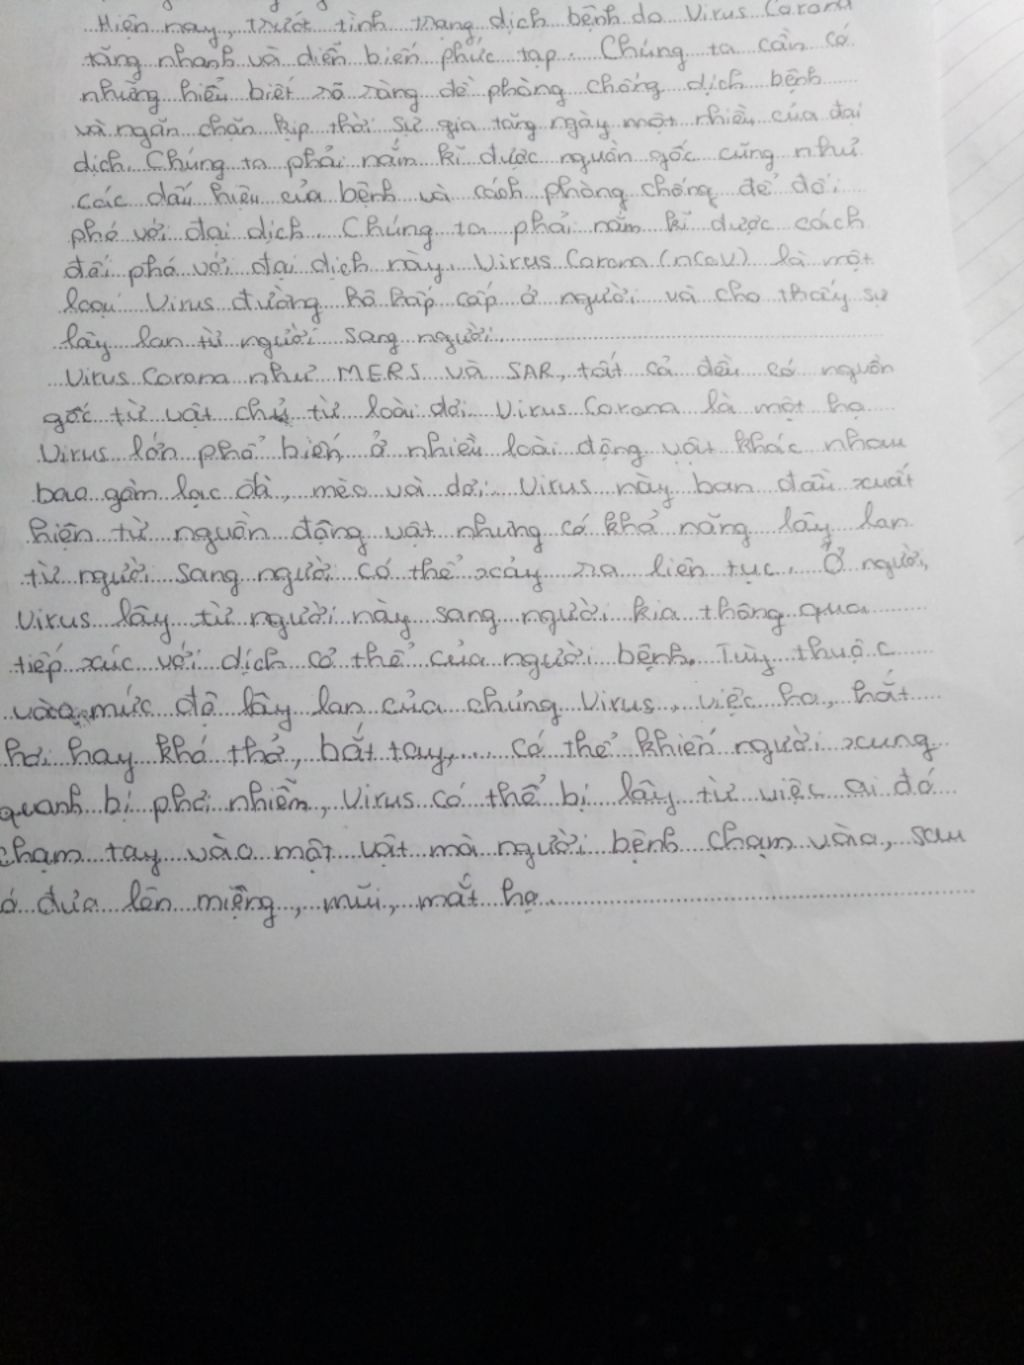 Hiện nay, trướt tình trạng dịch bệnh do Virus Corona
tăng nhanh và diễn biến phức tạp. Chúng ta cần có
những hiểu biết rõ ràng để phòng chống dịch bệnh
và ngăn chặn kịp thời sự gia tăng ngày một nhiều của đại
dịch. Chúng ta phải nắm kĩ được nguồn gốc cũng như
các dấu hiệu của bệnh và cách phòng chống để đối
phó với đại dịch. Chúng ta phải nắm kĩ được cách
đối phó với đại dịch này. Virus Corona (nCoV) là một
loại Virus đường hô hấp cấp ở người và cho thấy sự
lây lan từ người sang người.
Virus Corona như MERS và SAR, tất cả đều có nguồn
gốc từ vật chủ từ loài dơi. Virus Corona là một họ
Virus lớn phổ biến ở nhiều loài động vật khác nhau
bao gồm lạc đà, mèo và dơi. Virus này ban đầu xuất
hiện từ nguồn động vật nhưng có khả năng lây lan
từ người sang người có thể xảy ra liên tục. Ở người,
Virus lây từ người này sang người kia thông qua
tiếp xúc với dịch cơ thể của người bệnh. Tùy thuộc
vào mức độ lây lan của chủng Virus, việc ho, hắt
hơi hay khó thở, bắt tay,... có thể khiến người xung
quanh bị phơi nhiễm, Virus có thể bị lây từ việc ai đó
chạm tay vào một vật mà người bệnh chạm vào, sau
ó đưa lên miệng, mũi, mắt họ.